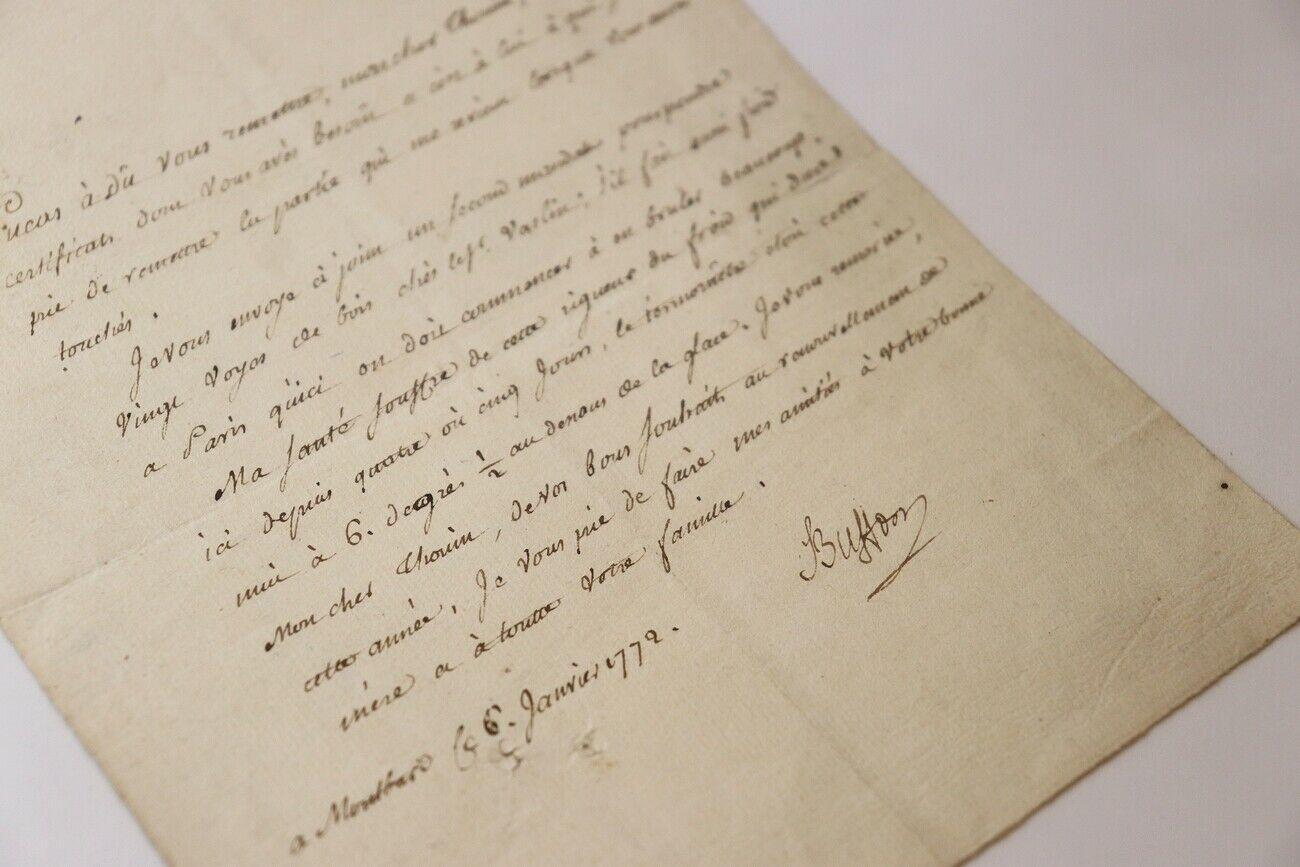 ucas à Dû Vous remettre, mon cher Thouin,
certificats dont Vous avès besoin
prie de remettre la partie qui me
touchés.
Je vous envoye cÿ joint un second mandat pour prendre
Vingt Voyes de bois chès le Sr. Varlin; s'il fait aussi froid
a Paris qu'ici on doit commencer à en bruler beaucoup.
Ma santé souffre de cette rigueur du froid qui dure
ici depuis quatre où cinq Jours, le termomètre étoit cette
nuit à 6. degrès 1/2 au dessous de la glace. Je vous remercie,
Mon cher Thouin, de vos bons souhaits au renouvellement de
cette année, Je vous prie de faire mes amitiés à votre bonne
mère et à toutte votre famille.
Buffon
a Montbard le 6. Janvier 1772.